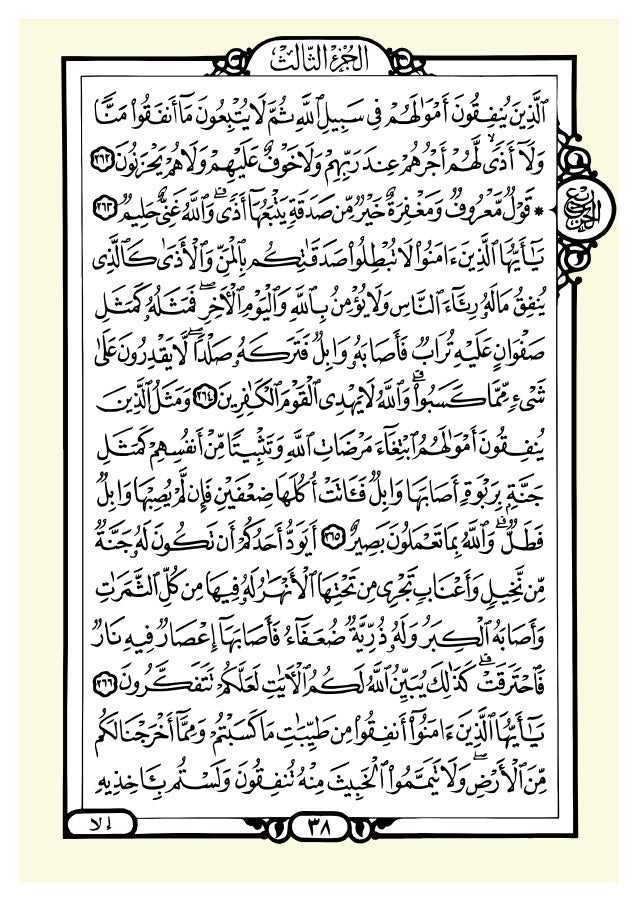 الجزء الثالث
ٱلَّذِينَ يُنفِقُونَ أَمْوَٰلَهُمْ فِى سَبِيلِ ٱللَّهِ ثُمَّ لَا يُتْبِعُونَ مَآ أَنفَقُوا۟ مَنًّا
وَلَآ أَذًى ۙ لَّهُمْ أَجْرُهُمْ عِندَ رَبِّهِمْ وَلَا خَوْفٌ عَلَيْهِمْ وَلَا هُمْ يَحْزَنُونَ ٢٦٢
۞ قَوْلٌ مَّعْرُوفٌ وَمَغْفِرَةٌ خَيْرٌ مِّن صَدَقَةٍ يَتْبَعُهَآ أَذًى ۗ وَٱللَّهُ غَنِىٌّ حَلِيمٌ ٢٦٣
يَٰٓأَيُّهَا ٱلَّذِينَ ءَامَنُوا۟ لَا تُبْطِلُوا۟ صَدَقَٰتِكُم بِٱلْمَنِّ وَٱلْأَذَىٰ كَٱلَّذِى
يُنفِقُ مَالَهُۥ رِئَآءَ ٱلنَّاسِ وَلَا يُؤْمِنُ بِٱللَّهِ وَٱلْيَوْمِ ٱلْءَاخِرِ ۖ فَمَثَلُهُۥ كَمَثَلِ
صَفْوَانٍ عَلَيْهِ تُرَابٌ فَأَصَابَهُۥ وَابِلٌ فَتَرَكَهُۥ صَلْدًا ۖ لَّا يَقْدِرُونَ عَلَىٰ
شَىْءٍ مِّمَّا كَسَبُوا۟ ۗ وَٱللَّهُ لَا يَهْدِى ٱلْقَوْمَ ٱلْكَٰفِرِينَ ٢٦٤ وَمَثَلُ ٱلَّذِينَ
يُنفِقُونَ أَمْوَٰلَهُمُ ٱبْتِغَآءَ مَرْضَاتِ ٱللَّهِ وَتَثْبِيتًا مِّنْ أَنفُسِهِمْ كَمَثَلِ
جَنَّةٍۭ بِرَبْوَةٍ أَصَابَهَا وَابِلٌ فَـَٔاتَتْ أُكُلَهَا ضِعْفَيْنِ فَإِن لَّمْ يُصِبْهَا وَابِلٌ
فَطَلٌّ ۗ وَٱللَّهُ بِمَا تَعْمَلُونَ بَصِيرٌ ٢٦٥ أَيَوَدُّ أَحَدُكُمْ أَن تَكُونَ لَهُۥ جَنَّةٌ
مِّن نَّخِيلٍ وَأَعْنَابٍ تَجْرِى مِن تَحْتِهَا ٱلْأَنْهَٰرُ لَهُۥ فِيهَا مِن كُلِّ ٱلثَّمَرَٰتِ
وَأَصَابَهُ ٱلْكِبَرُ وَلَهُۥ ذُرِّيَّةٌ ضُعَفَآءُ فَأَصَابَهَآ إِعْصَارٌ فِيهِ نَارٌ
فَٱحْتَرَقَتْ ۗ كَذَٰلِكَ يُبَيِّنُ ٱللَّهُ لَكُمُ ٱلْءَايَٰتِ لَعَلَّكُمْ تَتَفَكَّرُونَ ٢٦٦
يَٰٓأَيُّهَا ٱلَّذِينَ ءَامَنُوٓا۟ أَنفِقُوا۟ مِن طَيِّبَٰتِ مَا كَسَبْتُمْ وَمِمَّآ أَخْرَجْنَا لَكُم
مِّنَ ٱلْأَرْضِ ۖ وَلَا تَيَمَّمُوا۟ ٱلْخَبِيثَ مِنْهُ تُنفِقُونَ وَلَسْتُم بِـَٔاخِذِيهِ
إلا
٣٨